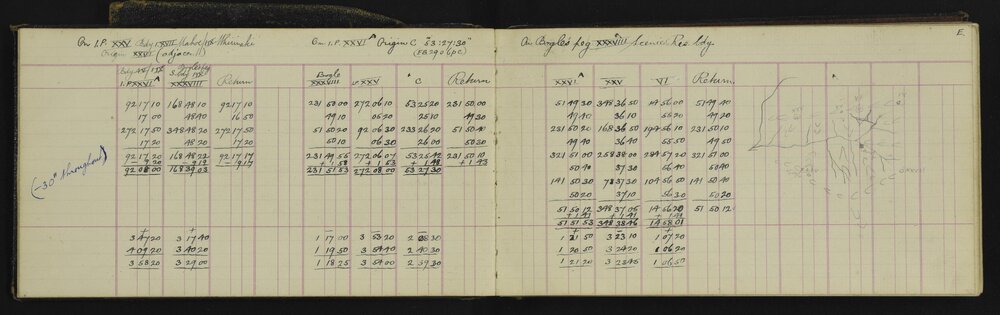 On I.P. XXV Bdy I.XXII Mahoe/IX Whirinaki
Origin XXVI (adjacen 11)
I.P.XXVI A XXXVIII Return
92 17 10 168 48 10 92 17 10
17 00 48 40 16 50
272 17 50 348 48 20 272 17 50
17 20 48 20 17 20
92 17 20 168 48 22 92 17 17
- 9 20 - 9 19 - 9 17
92 08 00 168 39 03
(-30" throughout)
3 47 20 3 17 40
4 09 20 3 40 20
3 58 20 3 29 00
On I.P. XXVI A Origin C "53:27:30"
(FB2906 p C)
Bogle
XXXVIII XXV C Return
231 50 00 272 06 10 53 25 20 231 50 00
49 10 05 20 25 10 49 30
51 50 20 92 06 30 233 26 20 51 50 40
50 10 06 30 26 00 50 30
231 49 55 272 06 07 53 25 42 231 50 10
+ 1 58 + 1 53 + 1 48 + 1 43
231 51 53 272 08 00 53 27 30
1 17 00 3 53 20 2 38 30
1 19 50 3 54 40 2 40 30
1 18 25 3 54 00 2 39 30
On Bogle's peg XXXVIII Scenic Res bdy.
E.
XXVI A XXV VI Return
51 49 30 348 36 50 14 56 00 51 49 40
49 40 36 10 55 20 49 20
231 50 20 168 36 50 194 56 10 231 50 10
49 40 36 40 55 50 49 50
321 51 00 258 38 00 284 57 20 321 51 00
50 40 37 30 56 40 50 40
141 50 30 78 37 30 104 56 00 141 50 40
50 20 37 10 56 30 50 20
51 50 12 348 37 05 14 56 20 51 50 12
+ 1 41 + 1 41 + 1 41
51 51 53 348 38 46 14 58 01
1 21 50 3 23 10 1 07 20
1 20 50 3 24 20 1 06 20
1 21 20 3 23 45 1 06 50